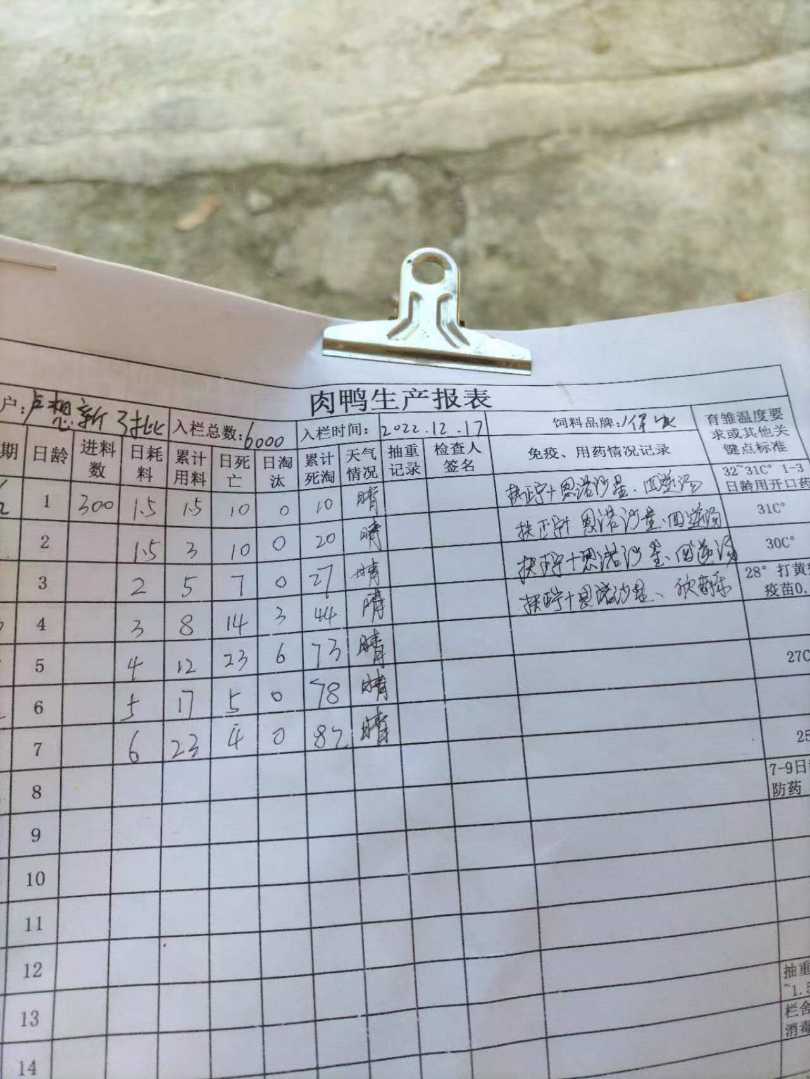 肉鸭生产报表
户: 卢想新 3批 入栏总数:6000 入栏时间: 2022.12.17 饲料品牌: 育雏温度要求或其他关键点标准
期 日龄 进料数 日耗料 累计用料 日死亡 日淘汰 累计死淘 天气情况 抽重记录 检查人签名 免疫、用药情况记录
1 300 1.5 1.5 10 0 10 晴 扶正宁+恩诺沙星、 32~31C° 1-3日龄用开口药
2 1.5 3 10 0 20 晴 扶正宁+恩诺沙星、 31C°
3 2 5 7 0 27 晴 扶正宁+恩诺沙星、 30C°
4 3 8 14 3 44 晴 扶正宁+恩诺沙星、 28° 打黄 疫苗0.
5 4 12 23 6 73 晴
6 5 17 5 0 78 晴 27C
7 6 23 4 0 82 晴 25
8 7-9日 防药
9
10
11
12
13 抽重 ~1.5 栏舍 消毒
14